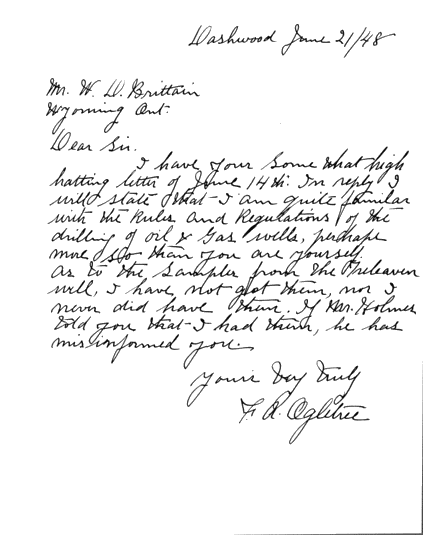 Dashwood June 21/48
Mr. W. D. Brittain
Wyoming Ont.
Dear Sir.
I have your some what high
hatting letter of June 14th. In reply I
will state that I am quite familar
with the Rules and Regulations of the
drilling of oil & Gas wells, perhaps
more so than you are yourself.
As to the Samples from the
well, I have not got them, nor I
never did have them. If Mr. Holmes
told you that I had them, he has
misinformed you.
Yours Very Truly
F. R. Ogletree